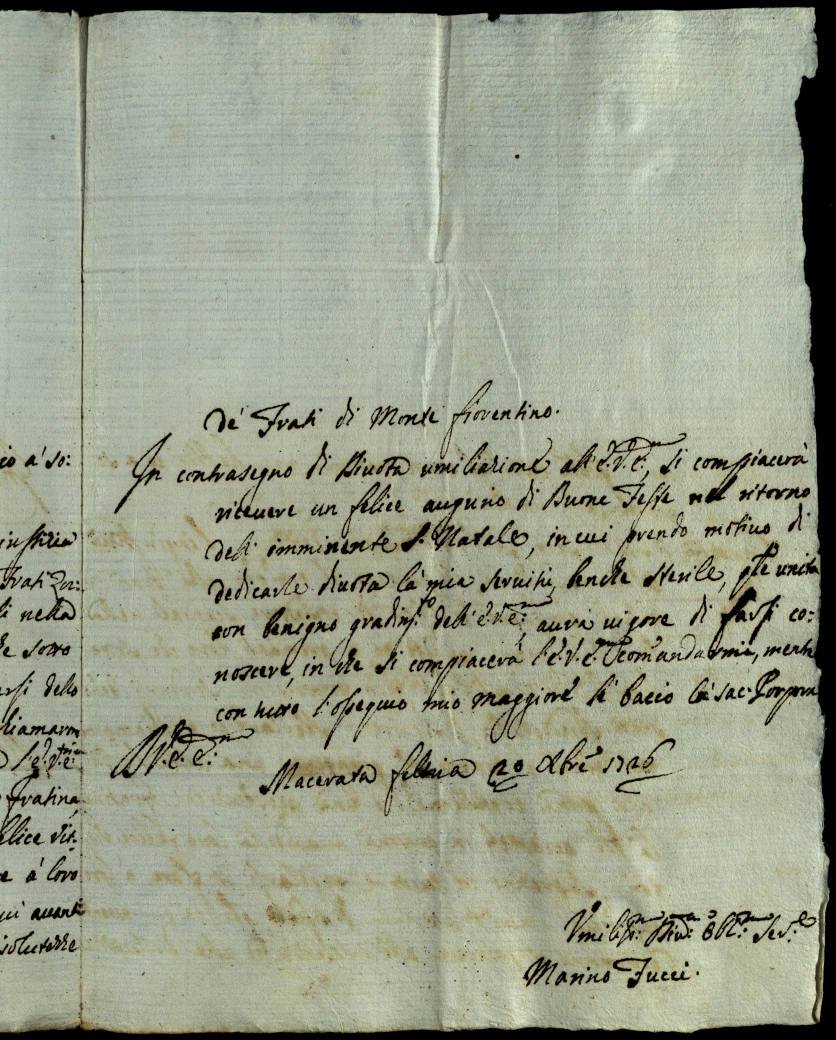 io a' so:
Frati
li nella
he sotto
arsi dello
hiamarm
Fratina
elice
e a' loro
ui avanti
isolutezze
De' Frati di Monte fiorentino.
In contrasegno di Divota umiliazione all'E.V.E., si compiacerà
ricevere un felice augurio di Buone Feste nel ritorno
dell'imminente S. Natale, in cui prendo motivo di
dedicarle divota la mia servitù, benche sterile, unita
con benigno gradim:to dell'E.V.E., avrà vigore di farsi co:
noscere, in che si compiacerà l'E.V.E. comandarmi, mentre
con tutto l'ossequio mio maggiore le bacio la sac: Porpora
D.V.E.E:
Macerata feltria 20 Xbre 1726
Vmiliss: Div: Obl: Se.re
Marino Fucci.